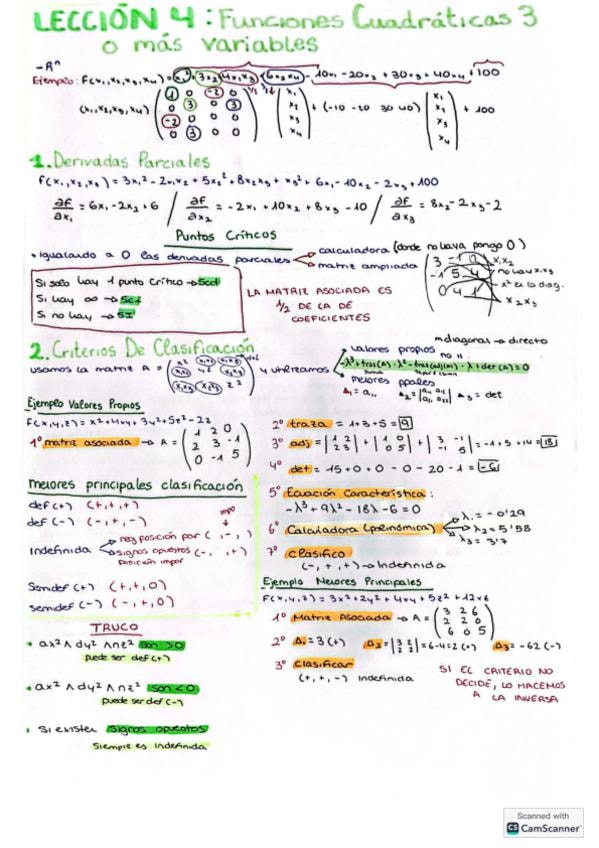 LECCIÓN 4: Funciones Cuadráticas 3
o más variables
- Rⁿ
Ejemplo: F(x₁,x₂,x₃,x₄) = x₁² + 3x₂² 4x₁x₃ + 6x₂x₄ - 10x₁ - 20x₂ + 30x₃ + 40x₄ + 100
(x₁,x₂,x₃,x₄) ( 1 0 -2 0 ) ( x₁ ) + (-10 -20 30 40) ( x₁ ) + 100
0 3 0 3 x₂ x₂
-2 0 0 0 x₃ x₃
0 3 0 0 x₄ x₄
1. Derivadas Parciales
F(x₁,x₂,x₃) = 3x₁² - 2x₁x₂ + 5x₂² + 8x₂x₃ + x₃² + 6x₁ - 10x₂ - 2x₃ + 100
∂F/∂x₁ = 6x₁ - 2x₂ + 6 / ∂F/∂x₂ = -2x₁ + 10x₂ + 8x₃ - 10 / ∂F/∂x₃ = 8x₂ - 2x₃ - 2
Puntos Críticos
• igualando a 0 las derivadas parciales
calculadora (donde no haya pongo 0)
matriz ampliada
( 3 -1 0 ) x₁x₂
-1 5 4 no hay x₁x₃
0 4 1 x² es la diag.
x₂x₃
Si solo hay 1 punto crítico → SCD
Si hay ∞ → SCI
Si no hay → SI
LA MATRIZ ASOCIADA ES
1/2 DE LA DE
COEFICIENTES
2. Criterios De Clasificación
mdiagonal → directo
usamos la matriz A =
y utilizamos
valores propios
-λ³ + traz(A)·λ² - traz(adj(A))·λ + det(A) = 0
menores ppales
Δ₁ = a₁₁ Δ₂ = |a₁₁ a₁₂| Δ₃ = det
Ejemplo Valores Propios
F(x,y,z) = x² + 4xy + 3y² + 5z² - 2z
1º matriz asociada → A = ( 1 2 0 )
2 3 -1
0 -1 5
2º traza = 1+3+5 = 9
3º adj = |1 2| + |1 0| + |3 -1| = -1 + 5 + 14 = 18
2 3 0 5 -1 5
4º det = 15 + 0 + 0 - 0 - 20 - 1 = -6
5º Ecuación Característica:
-λ³ + 9λ² - 18λ - 6 = 0
6º Calculadora (polinómica)
λ₁ = -0'29
λ₂ = 5'58
λ₃ = 3'7
7º Clasifico
(-, +, +) → Indefinida
menores principales clasificación
def (+) (+,+,+)
def (-) (-,+,-)
impo
Indefinida
neg posición par ( , - , )
signos opuestos (-, , +)
posición impar
Semidef (+) (+,+,0)
semidef (-) (-,+,0)
TRUCO
• ax² ∧ dy² ∧ nz² son >0
puede ser def (+)
• ax² ∧ dy² ∧ nz² son <0
puede ser def (-)
• Si existen signos opuestos
Siempre es indefinida
Ejemplo Menores Principales
F(x,y,z) = 3x² + 2y² + 4xy + 5z² + 12xz
1º Matriz Asociada → A = ( 3 2 6 )
2 2 0
6 0 5
2º Δ₁ = 3 (+) Δ₂ = |3 2| = 6-4 = 2 (+) Δ₃ = -62 (-)
2 2
3º Clasificar
(+,+,-) Indefinida
SI EL CRITERIO NO
DECIDE, LO HACEMOS
A LA INVERSA
Scanned with
CS CamScanner